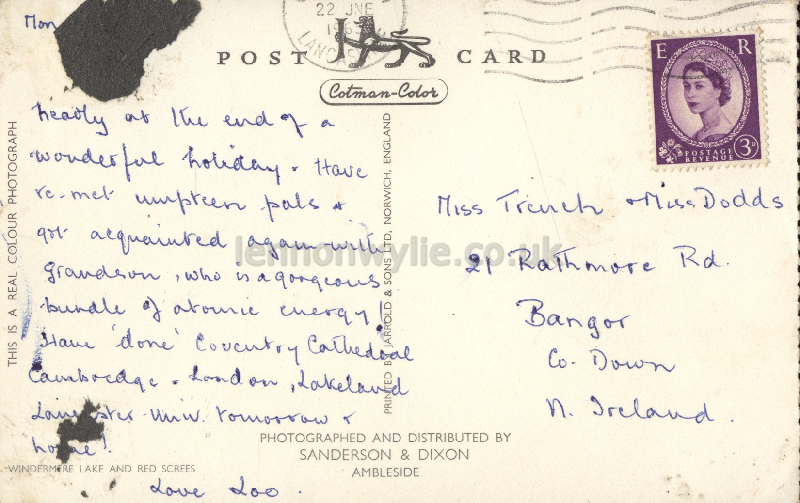 Mon
22 JNE
LANCAS
POST CARD
Cotman-Color
E R
POSTAGE
REVENUE
3D
THIS IS A REAL COLOUR PHOTOGRAPH
PRINTED BY JARROLD & SONS LTD, NORWICH, ENGLAND
Nearly at the end of a
wonderful holiday. Have
re-met umpteen pals &
got acquainted again with
grandson, who is a gorgeous
bundle of atomic energy!
Have 'done' Coventry Cathedral
Cambredge. London, Lakeland
Lancaster Univ. tomorrow &
home!
Love Loo.
Miss Trench & Miss Dodds
21 Rathmore Rd.
Bangor
Co. Down
N. Ireland.
PHOTOGRAPHED AND DISTRIBUTED BY
SANDERSON & DIXON
AMBLESIDE
WINDERMERE LAKE AND RED SCREES
lennonwylie.co.uk